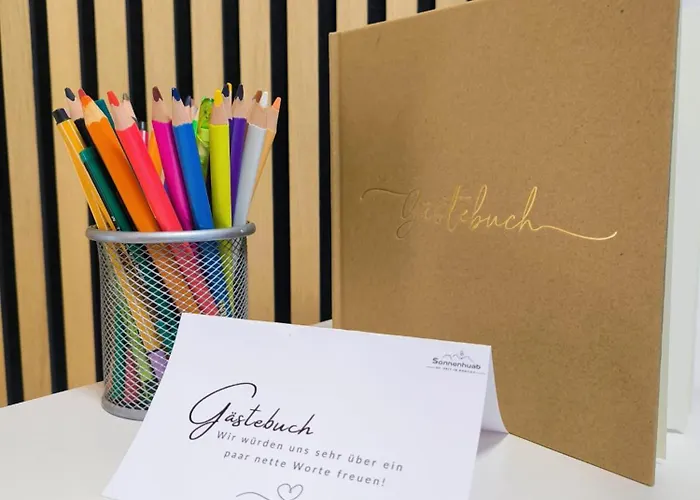 Gästebuch
Sonnenhuab
Gästebuch
Wir würden uns sehr über ein
paar nette Worte freuen!